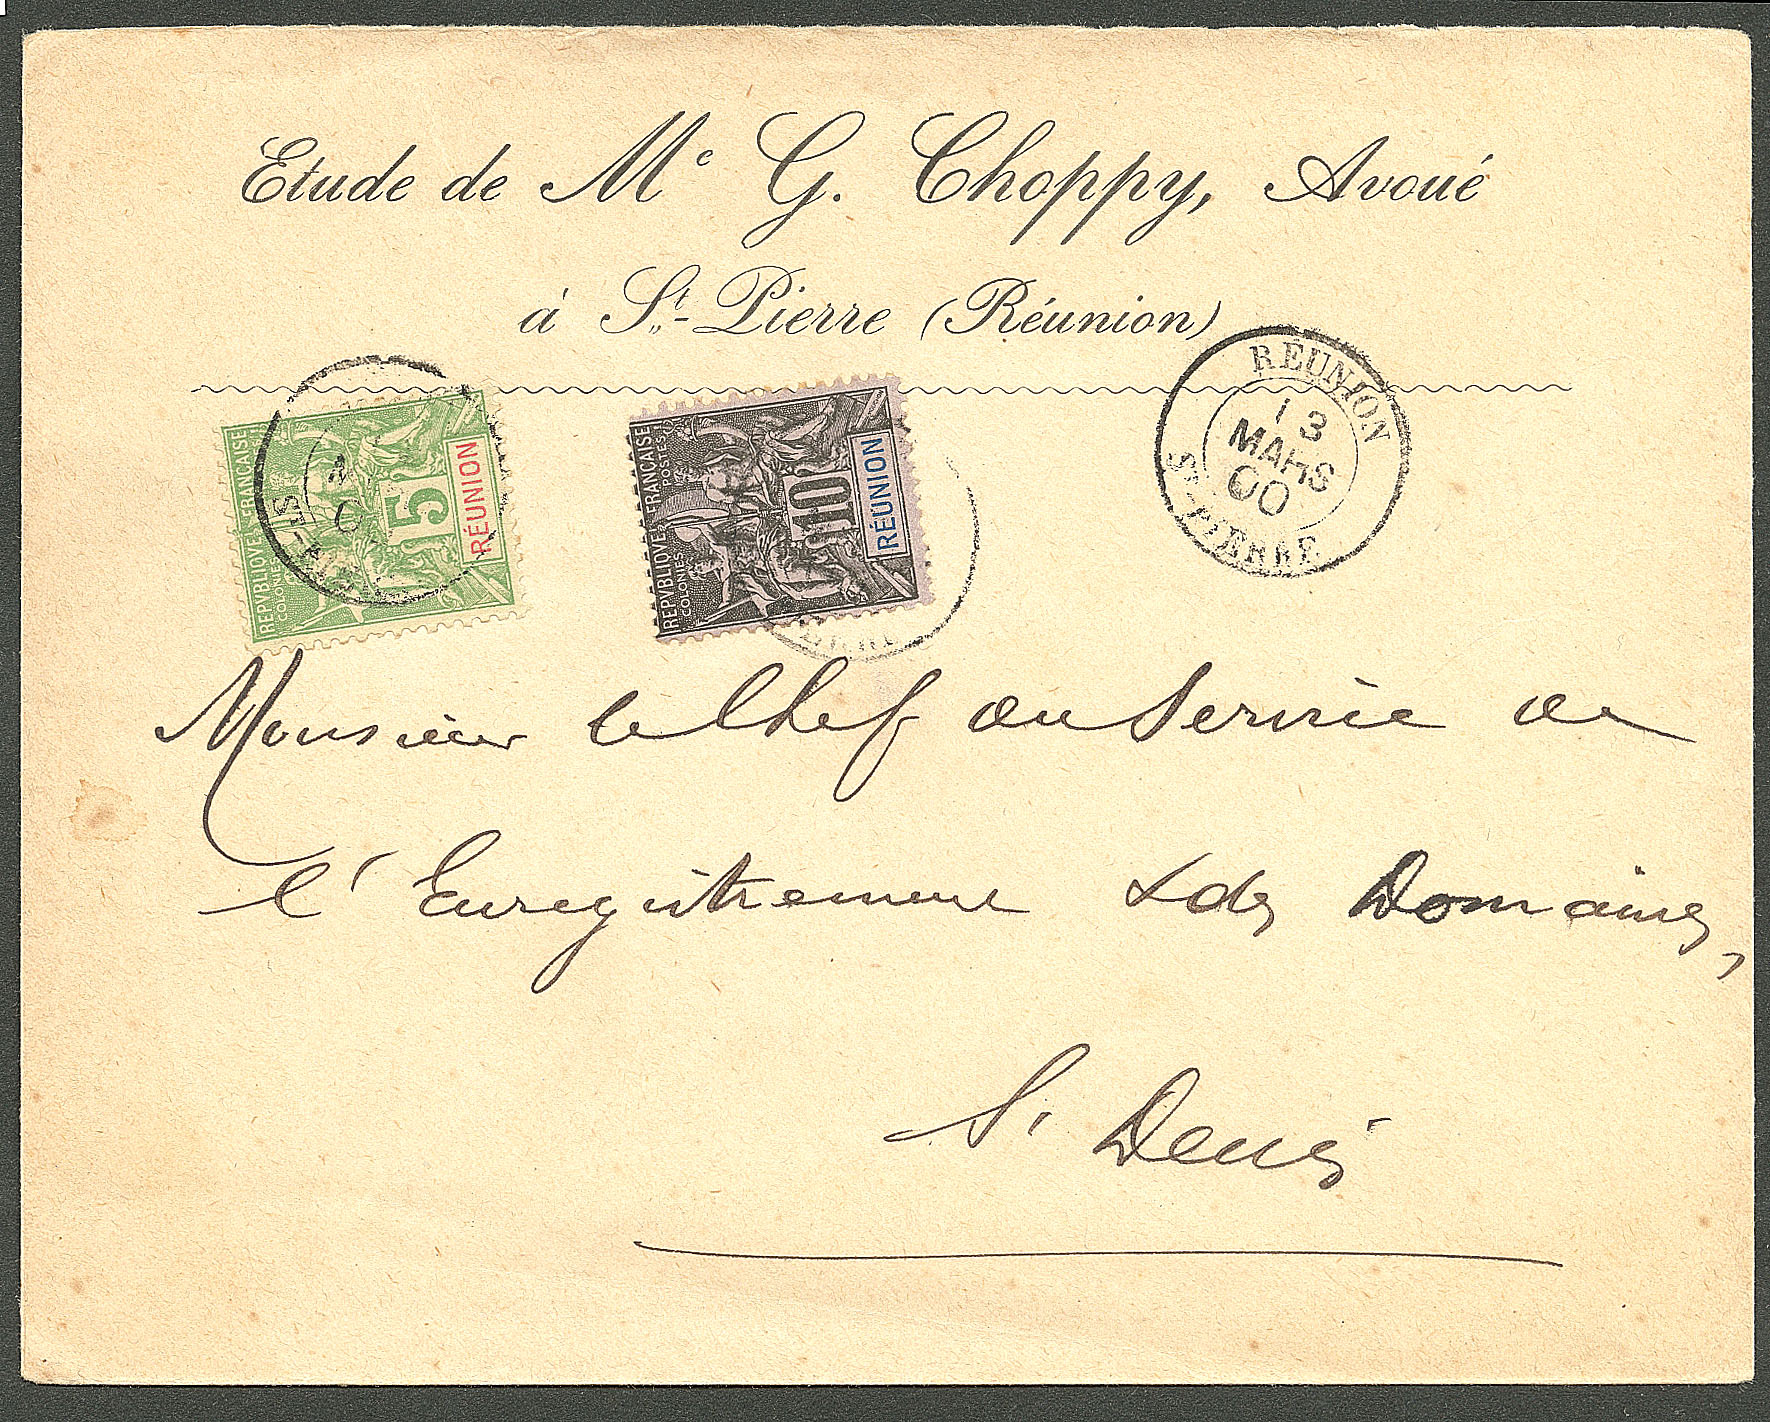 Etude de Me G. Choppy, Avoué
à St-Pierre (Réunion)
REPVBLIQVE FRANÇAISE
COLONIES
5
RÉUNION
REPVBLIQVE FRANÇAISE
COLONIES POSTES
10
RÉUNION
RÉUNION
13
MARS
00
ST-PIERRE
Monsieur le Chef du Service de
l'Enregistrement & des Domaines,
St Denis